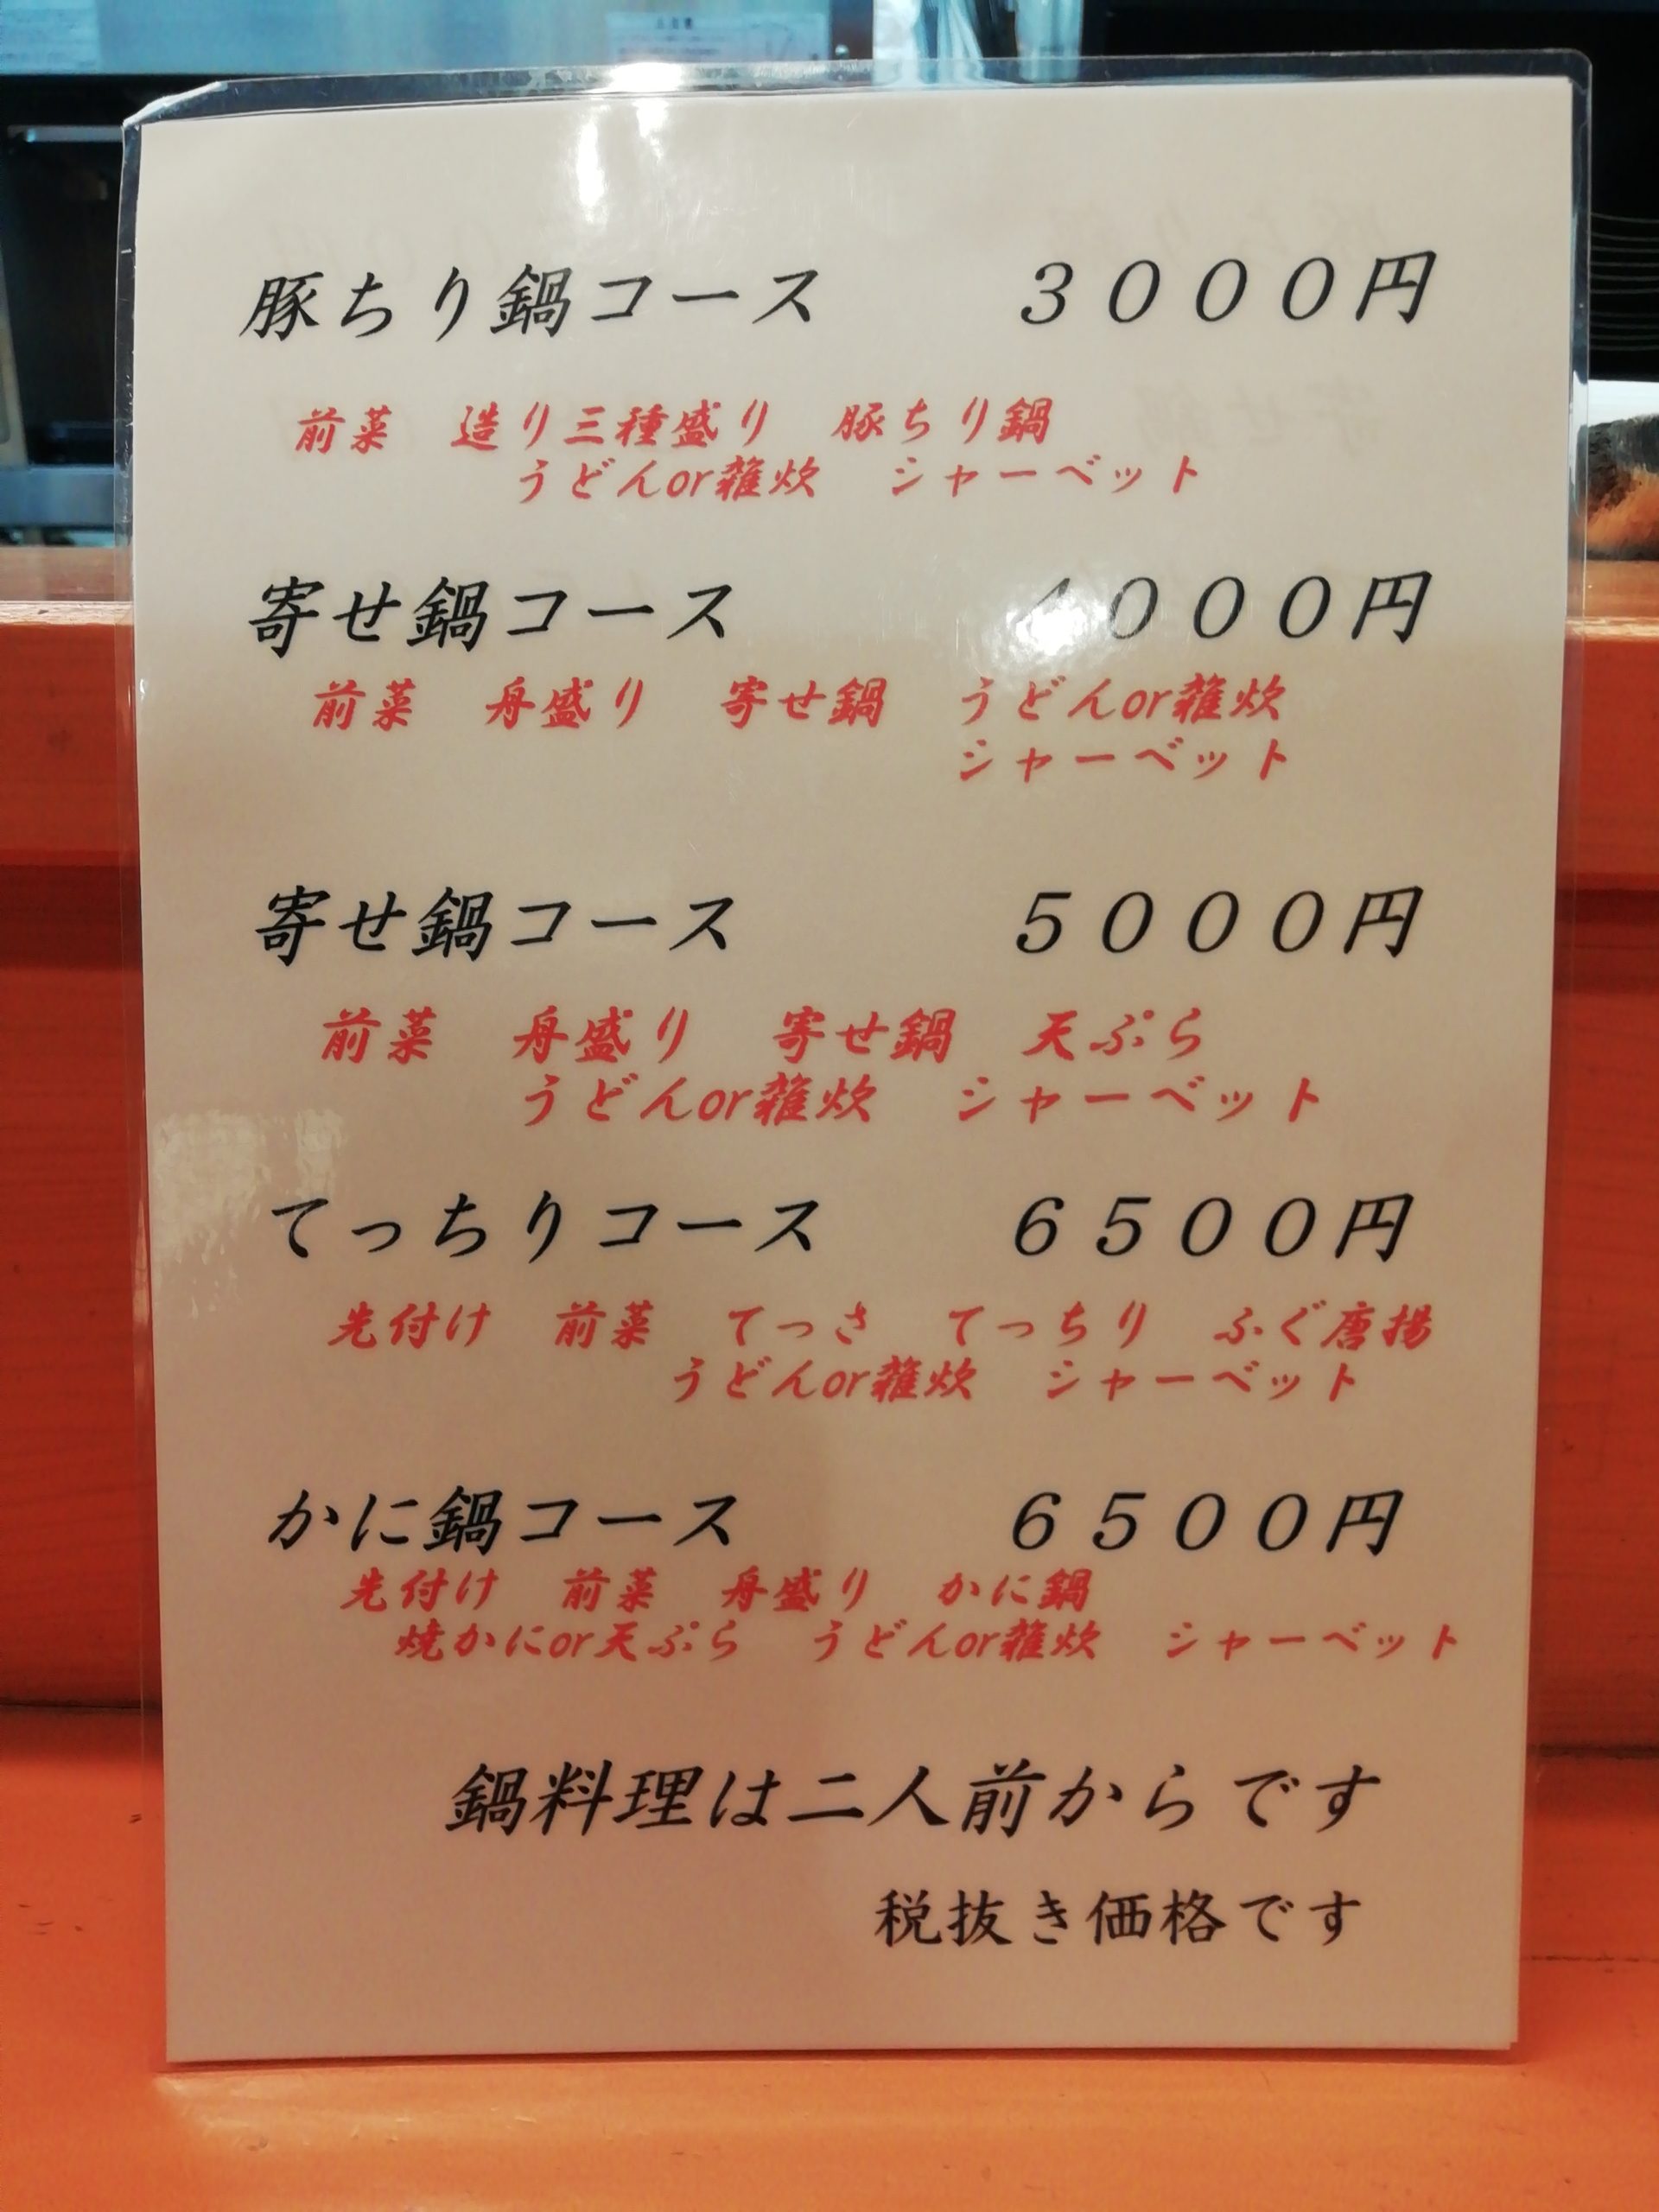 豚ちり鍋コース　３０００円
前菜　造り三種盛り　豚ちり鍋
うどんor雑炊　シャーベット
寄せ鍋コース　４０００円
前菜　舟盛り　寄せ鍋　うどんor雑炊
シャーベット
寄せ鍋コース　５０００円
前菜　舟盛り　寄せ鍋　天ぷら
うどんor雑炊　シャーベット
てっちりコース　６５００円
先付け　前菜　てっさ　てっちり　ふぐ唐揚
うどんor雑炊　シャーベット
かに鍋コース　６５００円
先付け　前菜　舟盛り　かに鍋
焼かにor天ぷら　うどんor雑炊　シャーベット
鍋料理は二人前からです
税抜き価格です